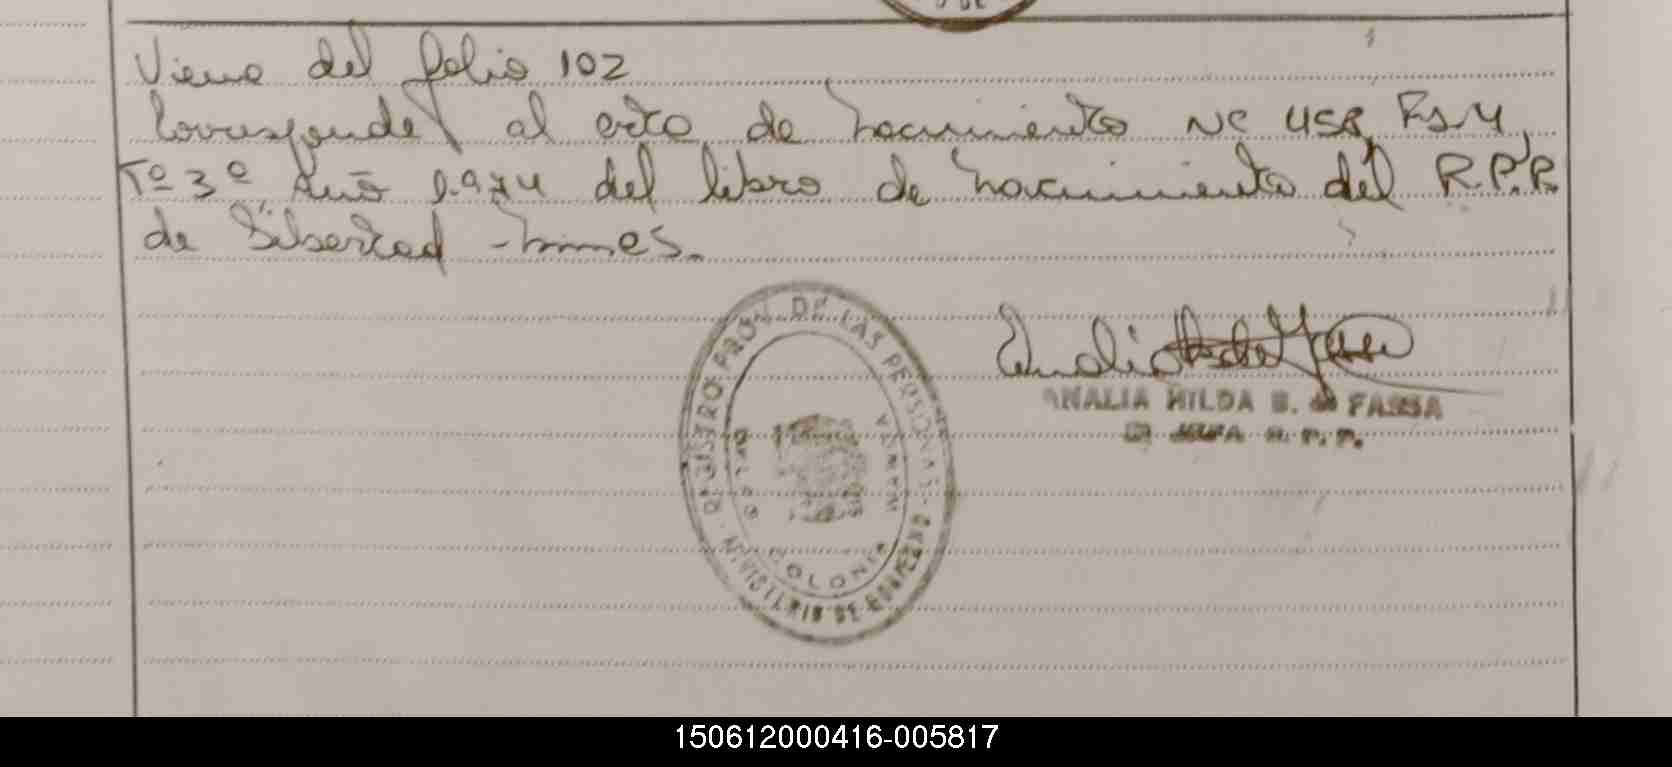 Viene del folio 102
Corresponde al acta de nacimiento Nº 458, Fs 4,
Tº 3º Año 1.974 del libro de nacimiento del R.P.P.
de Libertad - Mnes.
REGISTRO PROV. DE LAS PERSONAS
MINISTERIO DE GOBIERNO
COLONIA
ANALIA HILDA B. de FASSA
JEFA R. P. P.
150612000416-005817